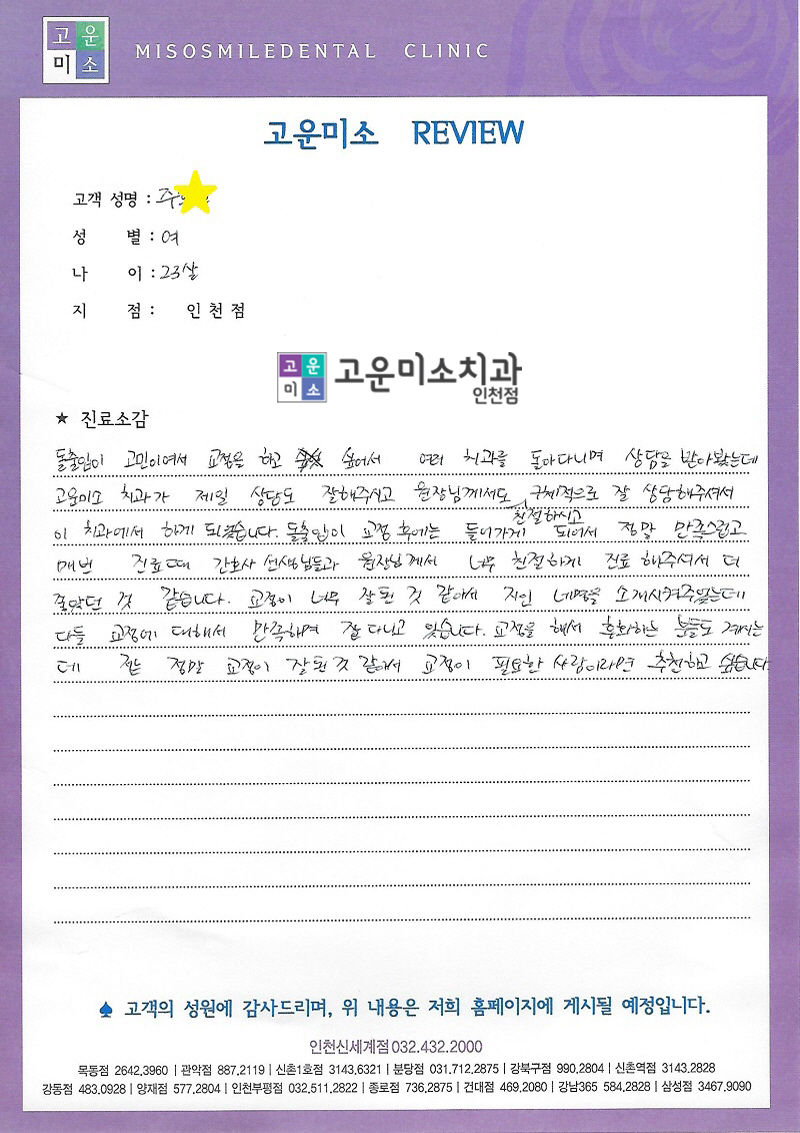 고운
미소
MISOSMILEDENTAL CLINIC
고운미소 REVIEW
고객 성명 : 주
성 별 : 여
나 이 : 23살
지 점 : 인천점
고운
미소
고운미소치과
인천점
★ 진료소감
돌출입이 고민이여서 교정을 하고 싶어서 여러 치과를 돌아다니며 상담을 받아봤는데
고운미소 치과가 제일 상담도 잘해주시고 원장님께서도 구체적으로 잘 상담해주셔서
친절하시고
이 치과에서 하게 되었습니다. 돌출입이 교정 후에는 들어가게 되어서 정말 만족스럽고
매번 진료때 간호사 선생님들과 원장님께서 너무 친절하게 진료 해주셔서 더
좋았던 것 같습니다. 교정이 너무 잘 된 것 같아서 지인 네명을 소개시켜주었는데
다들 교정에 대해서 만족하며 잘 다니고 있습니다. 교정을 해서 후회하는 분들도 계시는
데 저는 정말 교정이 잘 된 것 같아서 교정이 필요한 사람이라면 추천하고 싶습니다.
♠ 고객의 성원에 감사드리며, 위 내용은 저희 홈페이지에 게시될 예정입니다.
인천신세계점 032.432.2000
목동점 2642.3960 | 관악점 887.2119 | 신촌1호점 3143.6321 | 분당점 031.712.2875 | 강북구점 990.2804 | 신촌역점 3143.2828
강동점 483.0928 | 양재점 577.2804 | 인천부평점 032.511.2822 | 종로점 736.2875 | 건대점 469.2080 | 강남365 584.2828 | 삼성점 3467.9090